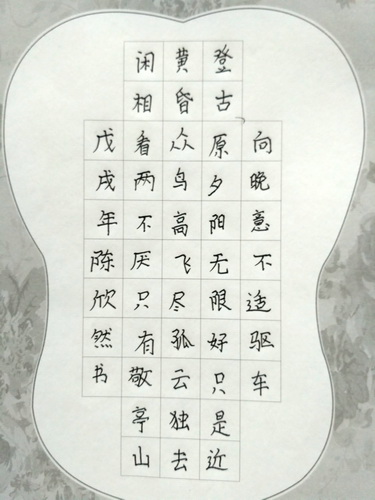 向晚意不适驱车
登古原夕阳无限好只是近
黄昏众鸟高飞尽孤云独去
闲相看两不厌只有敬亭山
戊戌年陈欣然书